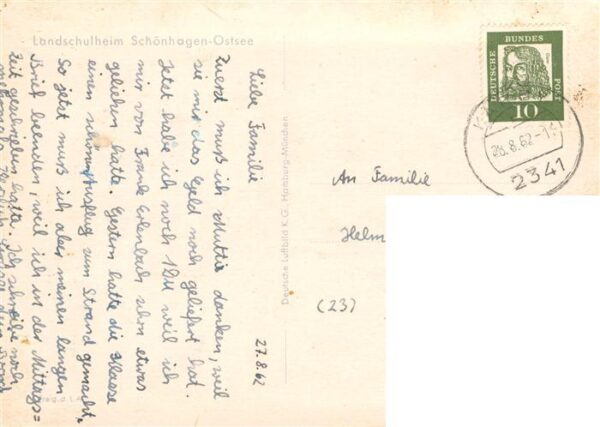 Landschulheim Schönhagen-Ostsee
Liebe Familie
Zuerst muß ich Muttie danken, weil
sie mir das Geld noch geliefert hat.
Jetzt habe ich noch 1DM weil ich
mir von Frau schon etwas
geliehen hatte. Gestern hatte die Klasse
einen Ausflug zum Strand gemacht.
So jetzt muß ich aber meinen langen
Brief beenden, weil ich in der Mittags=
zeit geschrieben hatte. Ich schreibe noch
27.8.62
Deutsche Luftbild K.G., Hamburg-München
DEUTSCHE BUNDES POST
10
26.8.62-1
2341
An Familie
Helm
(23)